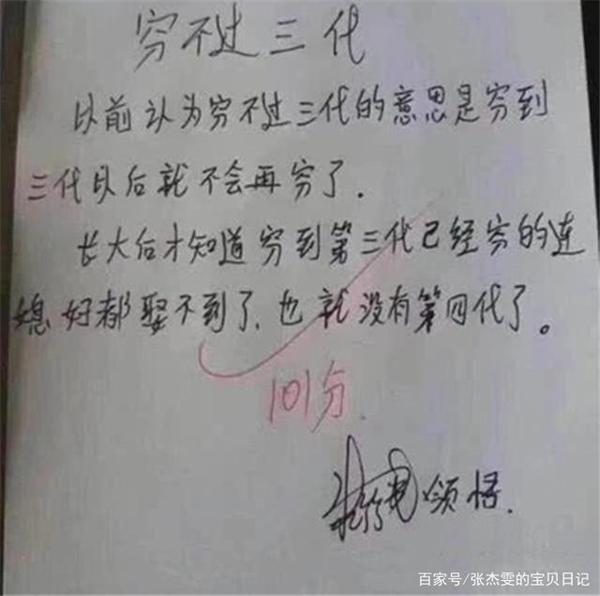 穷不过三代
以前认为穷不过三代的意思是穷到
三代以后就不会再穷了.
长大后才知道穷到第三代已经穷的连
媳好都娶不到了,也就没有第四代了。
101分.
领悟.
百家号/张杰雯的宝贝日记